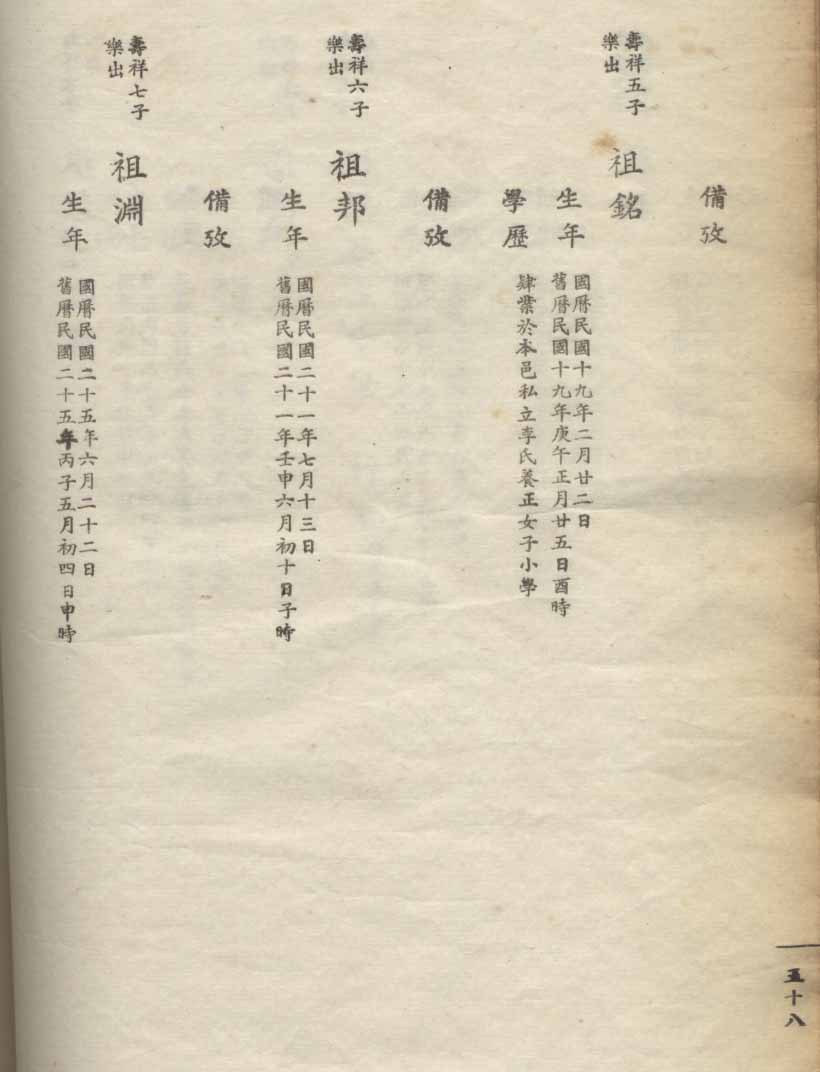 備攷
壽祥五子
樂出
祖銘
生年
國曆民國十九年二月廿二日
舊曆民國十九年庚午正月廿五日酉時
學歷
肄業於本邑私立李氏養正女子小學
備攷
壽祥六子
樂出
祖邦
生年
國曆民國二十一年七月十三日
舊曆民國二十一年壬申六月初十日子時
備攷
壽祥七子
樂出
祖淵
生年
國曆民國二十五年六月二十二日
舊曆民國二十五年丙子五月初四日申時
五十八